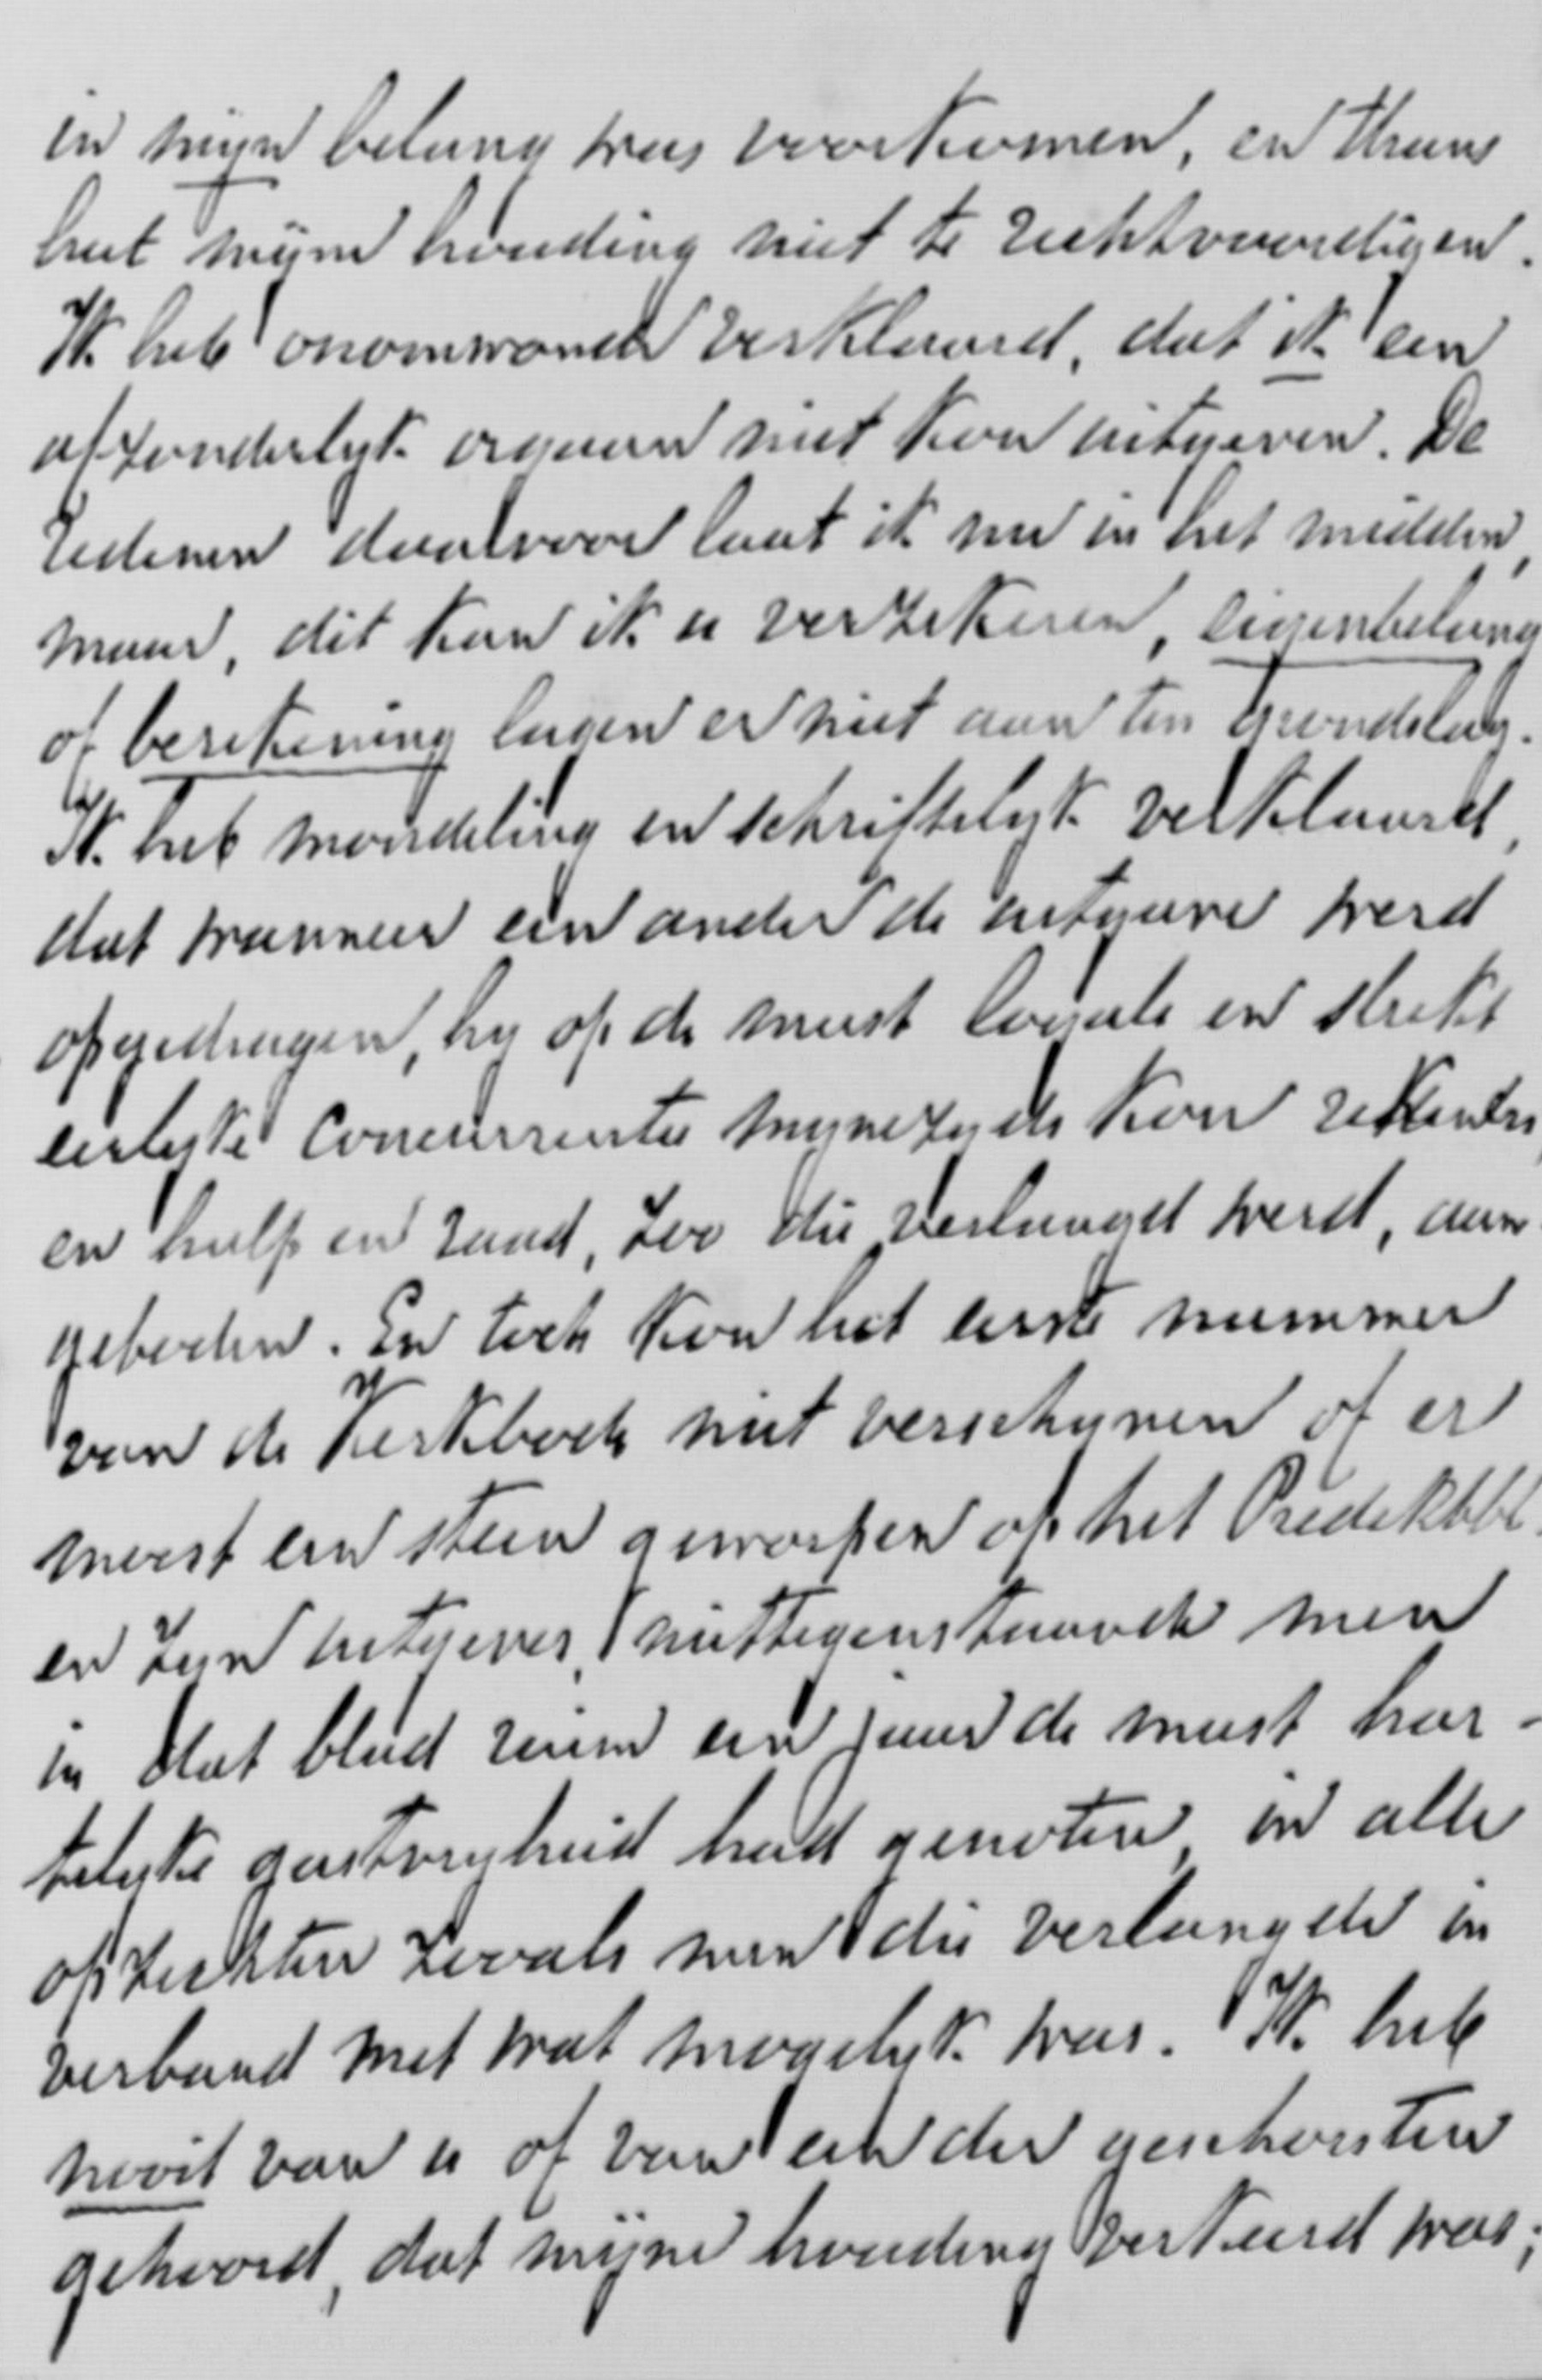 in mijn belang was voorkomen, en thans
heet mijne houding niet te rechtvaardigen.
Ik heb onomwonden verklaard, dat ik een
afzonderlijk orgaan niet kon uitgeven. De
redenen daarvoor laat ik nu in het midden,
maar, dit kan ik u verzekeren, eigenbelang
of berekening lagen er niet aan ten grondslag.
Ik heb mondeling en schriftelijk verklaard,
dat wanneer een ander de uitgave werd
opgedragen, hij op de meest loyale en strikt
eerlijke concurrentie mijnerzijds kon rekenen
en hulp en raad, zoo die verlangd werd, aan-
geboden. En toch kon het eerste nummer
van de Kerkbode niet verschijnen of er
moest een steen geworpen op het Predikbl.
en zijn uitgever, niettegenstaande men
in dat blad ruim een jaar de meest har-
telijke gastvrijheid had genoten, in alle
opzichten zooals men die verlangde in
verband met wat mogelijk was. Ik heb
nooit van u of van een der geschorsten
gehoord, dat mijne houding verkeerd was;